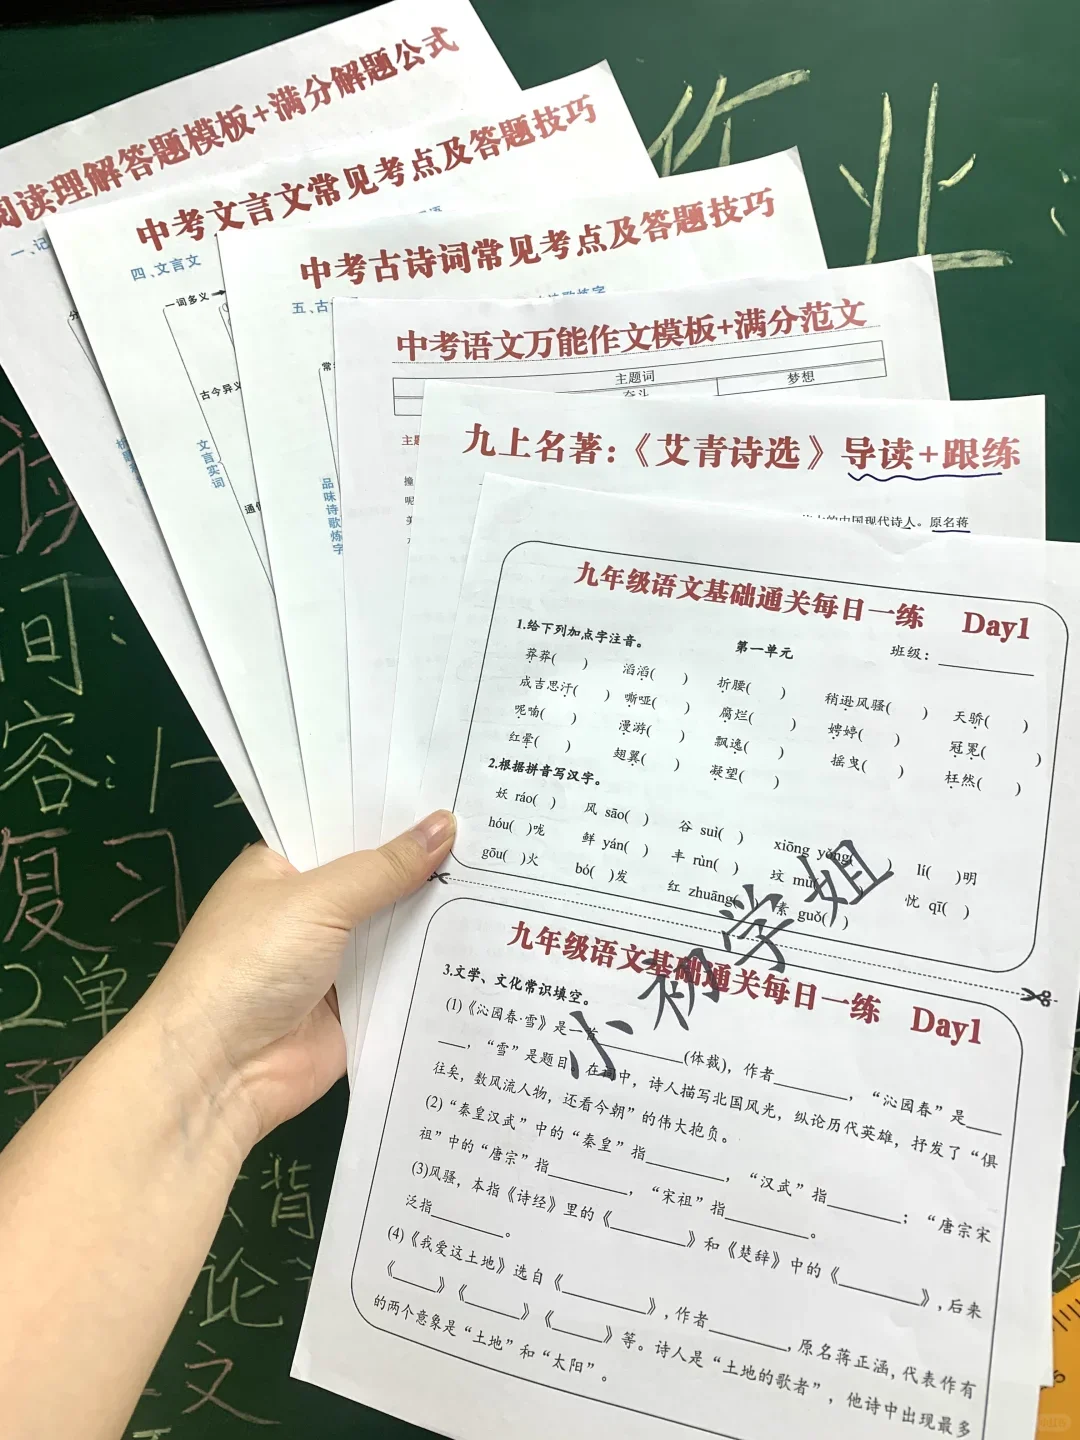 阅读理解答题模板+满分解题公式
一、记
中考文言文常见考点及答题技巧
四、文言文
一词多义
古今异义
文言实词
通假
中考古诗词常见考点及答题技巧
五、古
诗歌炼字
常
品味诗歌炼字
中考语文万能作文模板+满分范文
主题词
奋斗
梦想
主题
撞
呢
美
九上名著:《艾青诗选》导读+跟练
的中国现代诗人。原名蒋
九年级语文基础通关每日一练 Day1
1.给下列加点字注音。 第一单元 班级:
莽莽( ) 滔滔( ) 折腰( ) 稍逊风骚( ) 天骄( )
成吉思汗( ) 嘶哑( ) 腐烂( ) 娉婷( ) 冠冕( )
呢喃( ) 漫游( ) 飘逸( ) 摇曳( ) 枉然( )
红晕( ) 翅翼( ) 凝望( )
2.根据拼音写汉字。
妖 ráo( ) 风 sāo( ) 谷 suì( ) xiōng yǒng( ) lí( )明
hóu( )咙 鲜 yán( ) 丰 rùn( ) 坟 mù( ) 忧 qī( )
gōu( )火 bó( )发 红 zhuāng( ) 素 guǒ( )
小初学姐
九年级语文基础通关每日一练 Day1
3.文学、文化常识填空。
(1)《沁园春·雪》是一首________(体裁),作者________,“沁园春”是____
____,“雪”是题目,在词中,诗人描写北国风光,纵论历代英雄,抒发了“俱
往矣,数风流人物,还看今朝”的伟大抱负。
(2)“秦皇汉武”中的“秦皇”指________,“汉武”指________;“唐宗宋
祖”中的“唐宗”指________,“宋祖”指________。
(3)风骚,本指《诗经》里的《________》和《楚辞》中的《________》,后来
泛指________。
(4)《我爱这土地》选自《________》,作者________,原名蒋正涵,代表作有
《____》《_____》《_____》等。诗人是“土地的歌者”,他诗中出现最多
的两个意象是“土地”和“太阳”。
作业
读
间:
容:
复习
2单
背
论
文